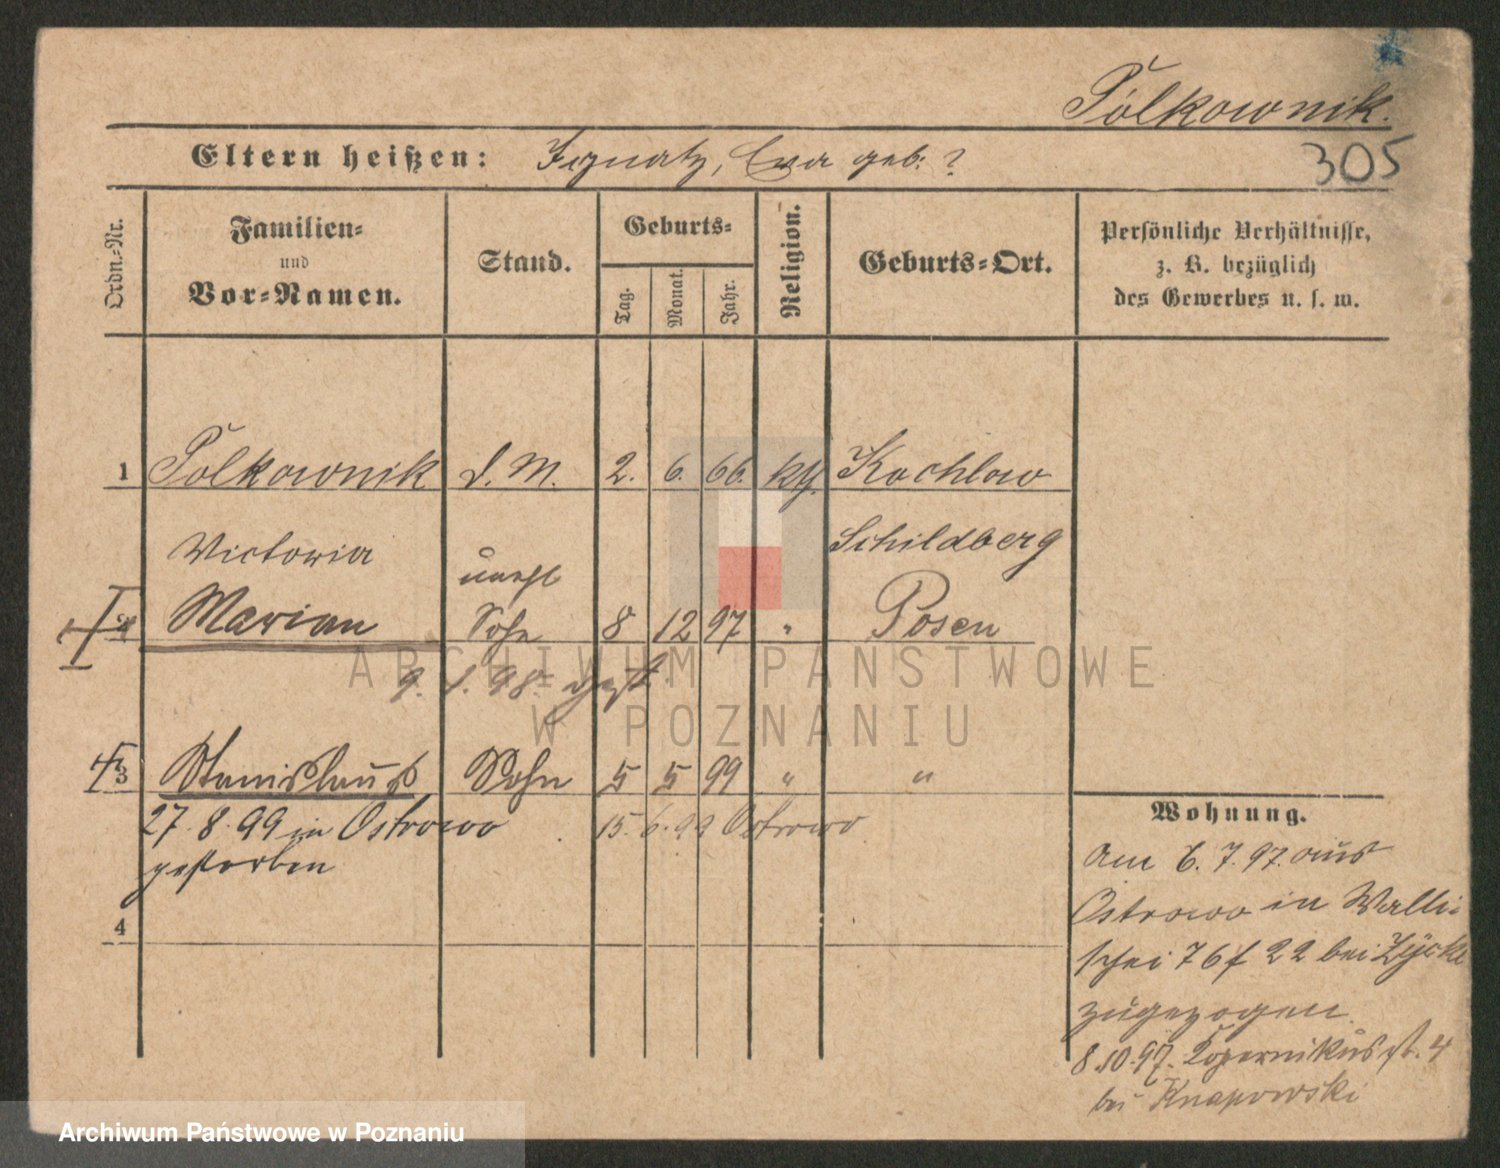 Pólkownik.
Eltern heißen: Ignatz, Eva geb: ?
305
Ordn.-Nr.
Familien-
und
Vor-Namen.
Stand.
Geburts-
Tag.
Monat.
Jahr.
Religion.
Geburts-Ort.
Persönliche Verhältnisse,
z. B. bezüglich
des Gewerbes u. s. w.
1 Pólkownik d. M. 2. 6. 66. kth. Kochlow
Victoria Schildberg
unehl
2 Marian Sohn 8 12 97 " Posen
9. 1. 98. gest.
3 Stanislaus Sohn 5 5 99 " "
27. 8. 99 in Ostrowo 15. 6. 99 Ostrowo
gestorben
4
Wohnung.
Am 6. 7. 97. aus
Ostrowo in Walli-
schei 76 f 22 bei Zyske
zugezogen.
8.10.97. Kopernikusst. 4
bei Knapowski
ARCHIWUM PAŃSTWOWE
W POZNANIU
Archiwum Państwowe w Poznaniu